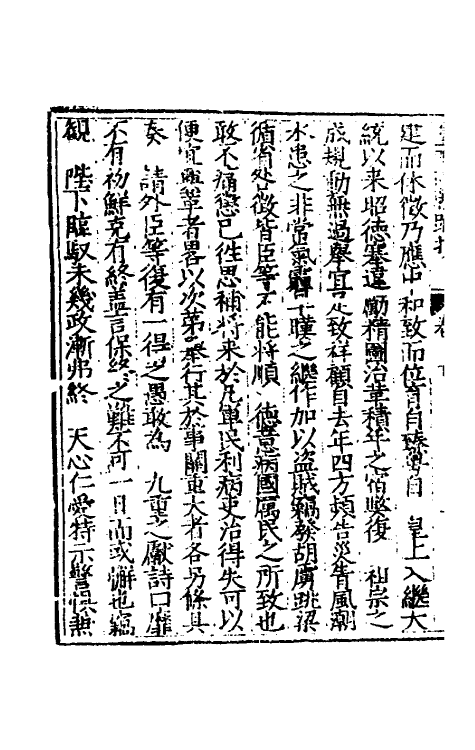 建而休徵乃應中和致而位育自臻矧自 皇上入繼大
統以来昭德塞違勵精圖治革積年之宿弊復 祖宗之
成規動無過舉宜足致祥顧自去年四方頻告災眚風潮
水患之非常氣霾曀之繼作加以盜賊竊發胡虜跳梁
循省咎徵皆臣等不能將順 德意病國厲民之所致也
敢不痛懲已往思補將来於凡軍民利病吏治得失可以
便宜興革者畧以次第舉行其於事關重大者各另條具
奏 請外臣等復有一得之愚敢為 九重之獻詩曰靡
不有初鮮克有終盖言保終之難不可一日而或懈也竊
觀 陛下臨馭未幾政漸弗終 天心仁愛特示警惧無